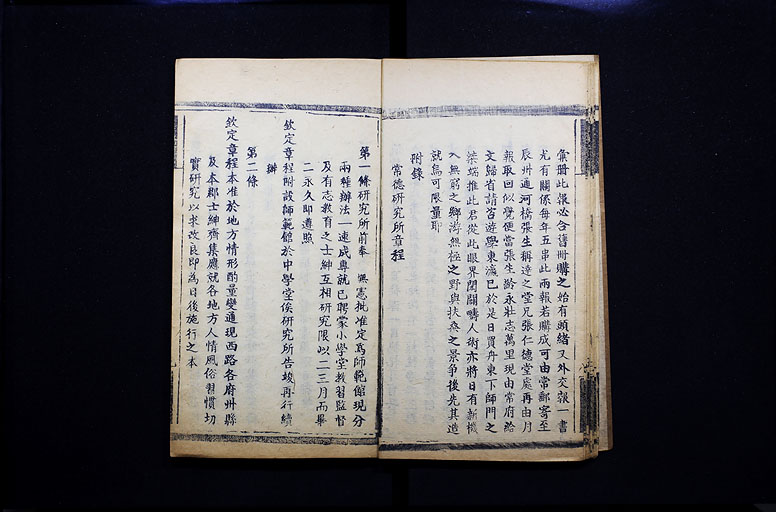 彙冊此報必合舊冊購之始有頭緒又外交報一書
尤有關係每年五串此兩報若購成可由常郵寄至
辰州通河橋張生稱達之堂兄張仁德堂處再由月
報取回似覺便當張生齡永壯志萬里現由常府給
文歸省請咨遊學東瀛已於是日買舟東下師門之
柒端推此君從此眼界閎闢疇人術亦將日有新機
入無窮之鄉游無極之野與扶桑之景爭後先其造
就烏可限量耶
附錄
常德研究所章程
第一條研究所前奉 無憲批准定爲師範館現分
兩種辦法一速成專就已聘蒙小學堂教習監督
及有志教育之士紳互相研究限以二三月而畢
二永久即遵照
欽定章程附設師範館於中學堂俟研究所告竣再行續
辦
第二條
欽定章程本准於地方情形酌量變通現西路各府州縣
及本郡士紳齊集應就各地方人情風俗習慣切
實研究以求改良即為日後施行之本